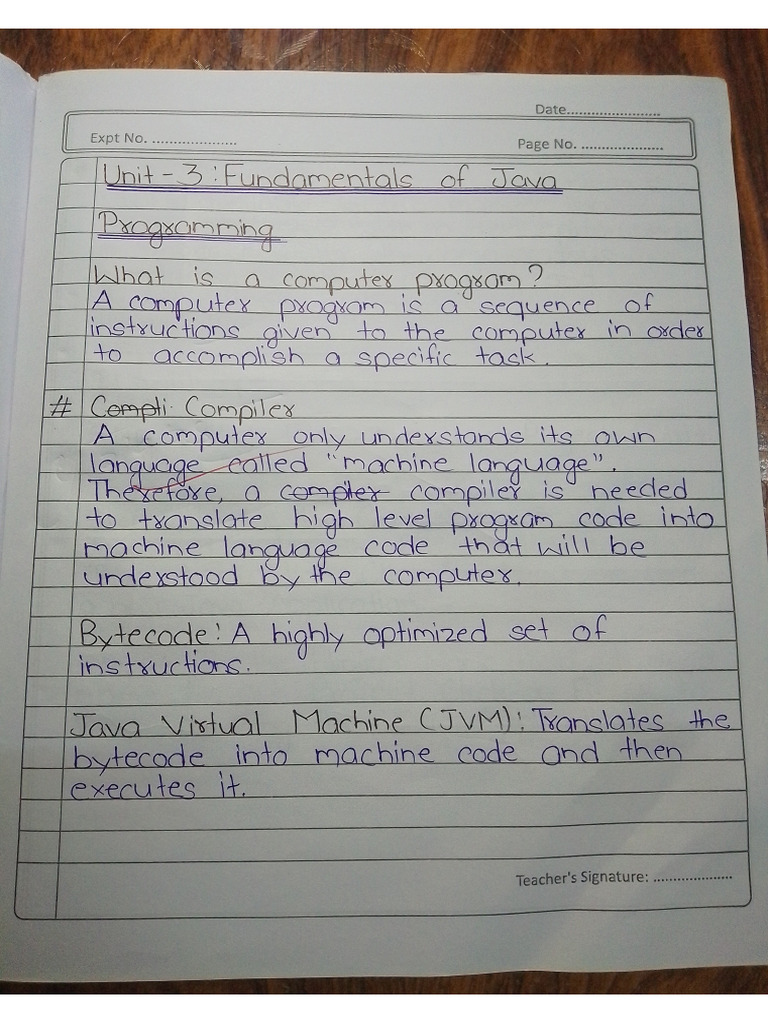 Date......................
Expt No. ....................
Page No. ....................
Unit-3: Fundamentals of Java
Programming
What is a computer program?
A computer program is a sequence of
instructions given to the computer in order
to accomplish a specific task.
# Compti. Compiler
A computer only understands its own
language called "machine language".
Therefore, a compiler is needed
to translate high level program code into
machine language code that will be
understood by the computer.
Bytecode: A highly optimized set of
instructions.
Java Virtual Machine (JVM): Translates the
bytecode into machine code and then
executes it.
Teacher's Signature: ....................